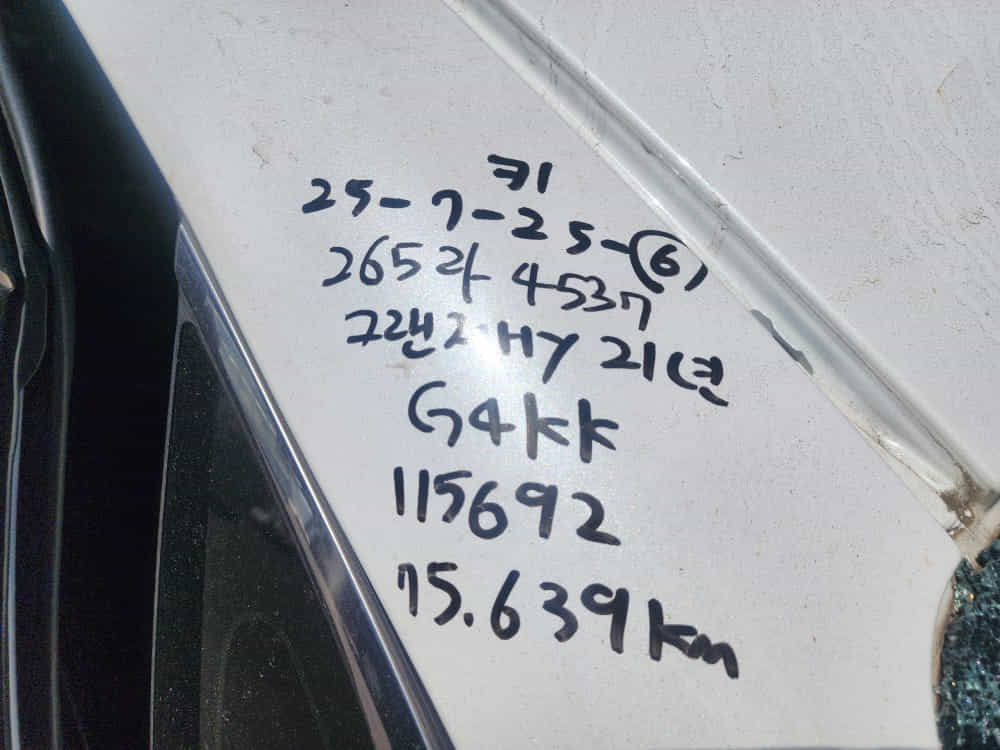 키
25-7-25-⑥
265라 4537
그랜저 HY 21년
G4KK
115692
75.639km